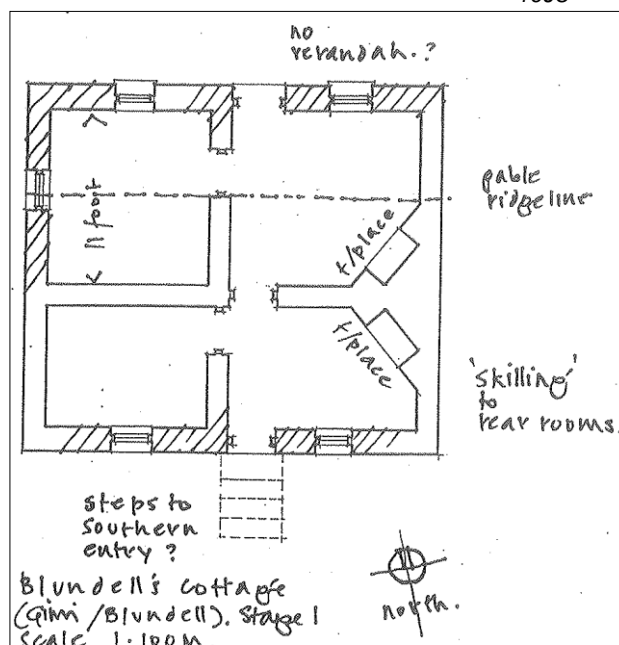 no
verandah.?
11 foot
gable
ridgeline
f/place
f/place
'skilling'
to
rear rooms.
steps to
southern
entry?
north.
Blundell's Cottage
(Ginn/Blundell). Stage 1
Scale 1:100M